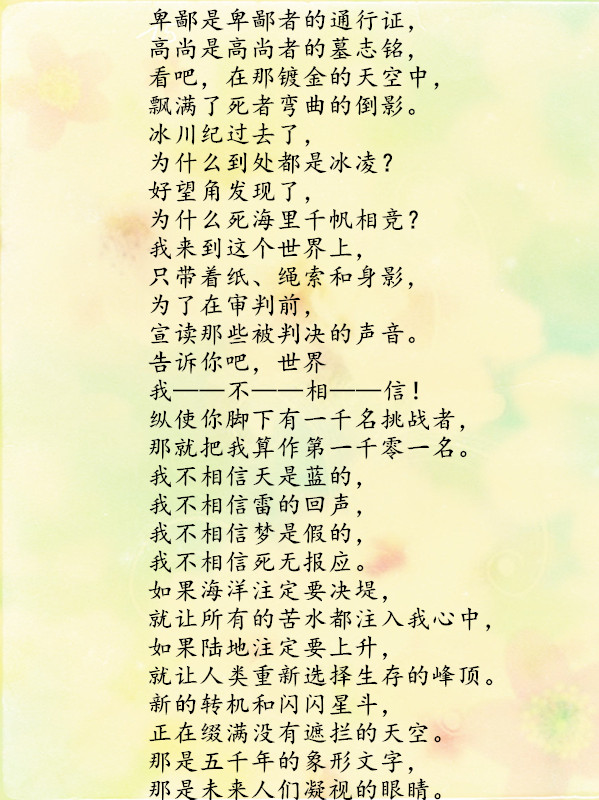 卑鄙是卑鄙者的通行证，
高尚是高尚者的墓志铭，
看吧，在那镀金的天空中，
飘满了死者弯曲的倒影。
冰川纪过去了，
为什么到处都是冰凌？
好望角发现了，
为什么死海里千帆相竞？
我来到这个世界上，
只带着纸、绳索和身影，
为了在审判前，
宣读那些被判决的声音。
告诉你吧，世界
我——不——相——信！
纵使你脚下有一千名挑战者，
那就把我算作第一千零一名。
我不相信天是蓝的，
我不相信雷的回声，
我不相信梦是假的，
我不相信死无报应。
如果海洋注定要决堤，
就让所有的苦水都注入我心中，
如果陆地注定要上升，
就让人类重新选择生存的峰顶。
新的转机和闪闪星斗，
正在缀满没有遮拦的天空。
那是五千年的象形文字，
那是未来人们凝视的眼睛。